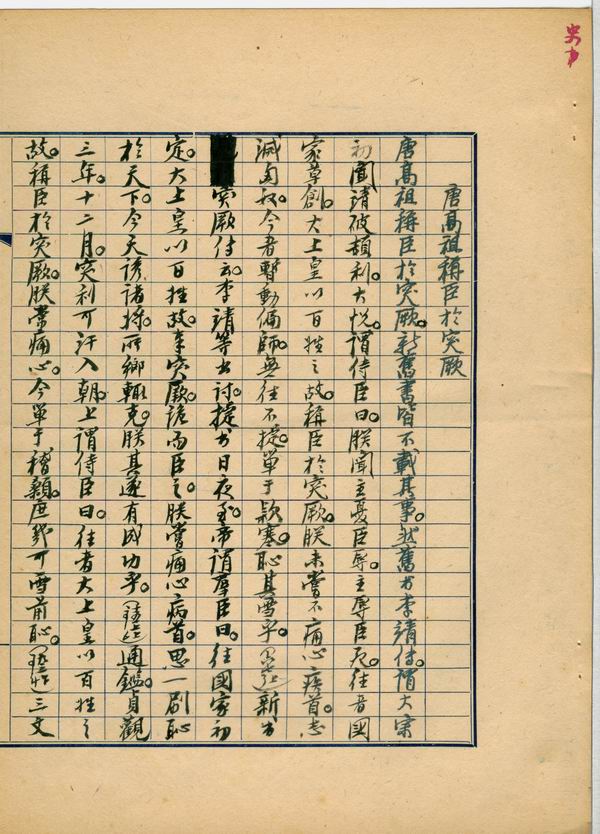 唐高祖稱臣於突厥
唐高祖稱臣於突厥。新舊書皆不載其事。然舊書李靖傳謂太宗
初聞靖破頡利。大悅。謂侍臣曰。朕聞主憂臣辱。主辱臣死。往者國
家草創。太上皇以百姓之故。稱臣於突厥。朕未嘗不痛心疾首。志
滅匈奴。今者暫動偏師。無往不捷。單于款塞。恥其雪乎。新書
突厥傳云。李靖等出討。捷書日夜至。帝謂群臣曰。往國家初
定。太上皇以百姓故。奉突厥。詭而臣之。朕嘗痛心病首。思一刷恥
於天下。今天誘諸將。所鄉輒克。朕其遂有成功乎。通鑑。貞觀
三年。十二月。突利可汗入朝。上謂侍臣曰。往者太上皇以百姓之
故。稱臣於突厥。朕常痛心。今單于稽顙。庶幾可雪前恥。三文